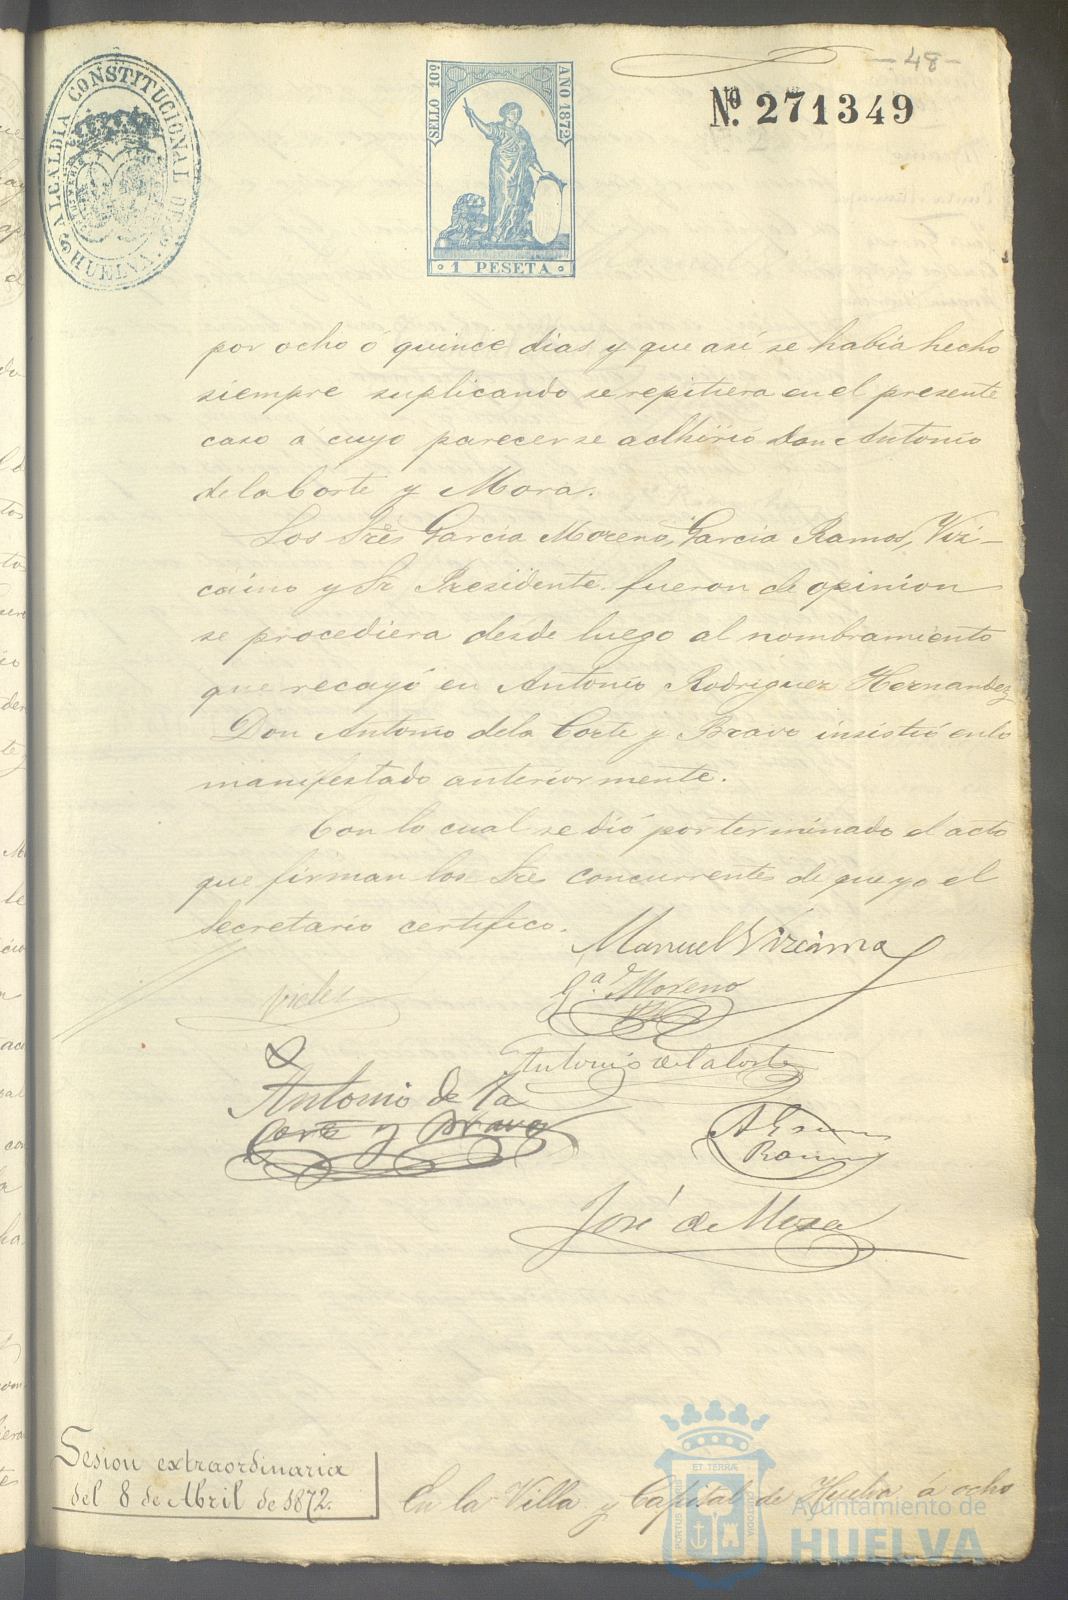 - 48 -
ALCALDIA CONSTITUCIONAL DE
HUELVA.
SELLO 10º
AÑO 1872
1 PESETA
Nº. 271349
por ocho ó quince dias y que así se había hecho
siempre suplicando se repitiera en el presente
caso á cuyo parecer se adhirió Don Antonio
de la Corte y Mora.
Los Sres García Moreno, García Ramos, Viz-
caino y Sr Presidente fueron de opinion
se procediera desde luego al nombramiento
que recayó en Antonio Rodriguez Hernandez
Don Antonio de la Corte y Bravo insistió en lo
manifestado anteriormente.
Con lo cual se dió por terminado el acto
que firman los Sres concurrentes de que yo el
Secretario certifico.
Manuel Vizcaino
Gª Moreno
Antonio de la Corte
Antonio de la
Corte y Bravo
Ramos
José de Mesa
Sesion extraordinaria
del 8 de Abril de 1872.
En la Villa y Capital de Huelva á ocho
ET TERRÆ
PORTUS MARIS
CUSTODIA
Ayuntamiento de
HUELVA